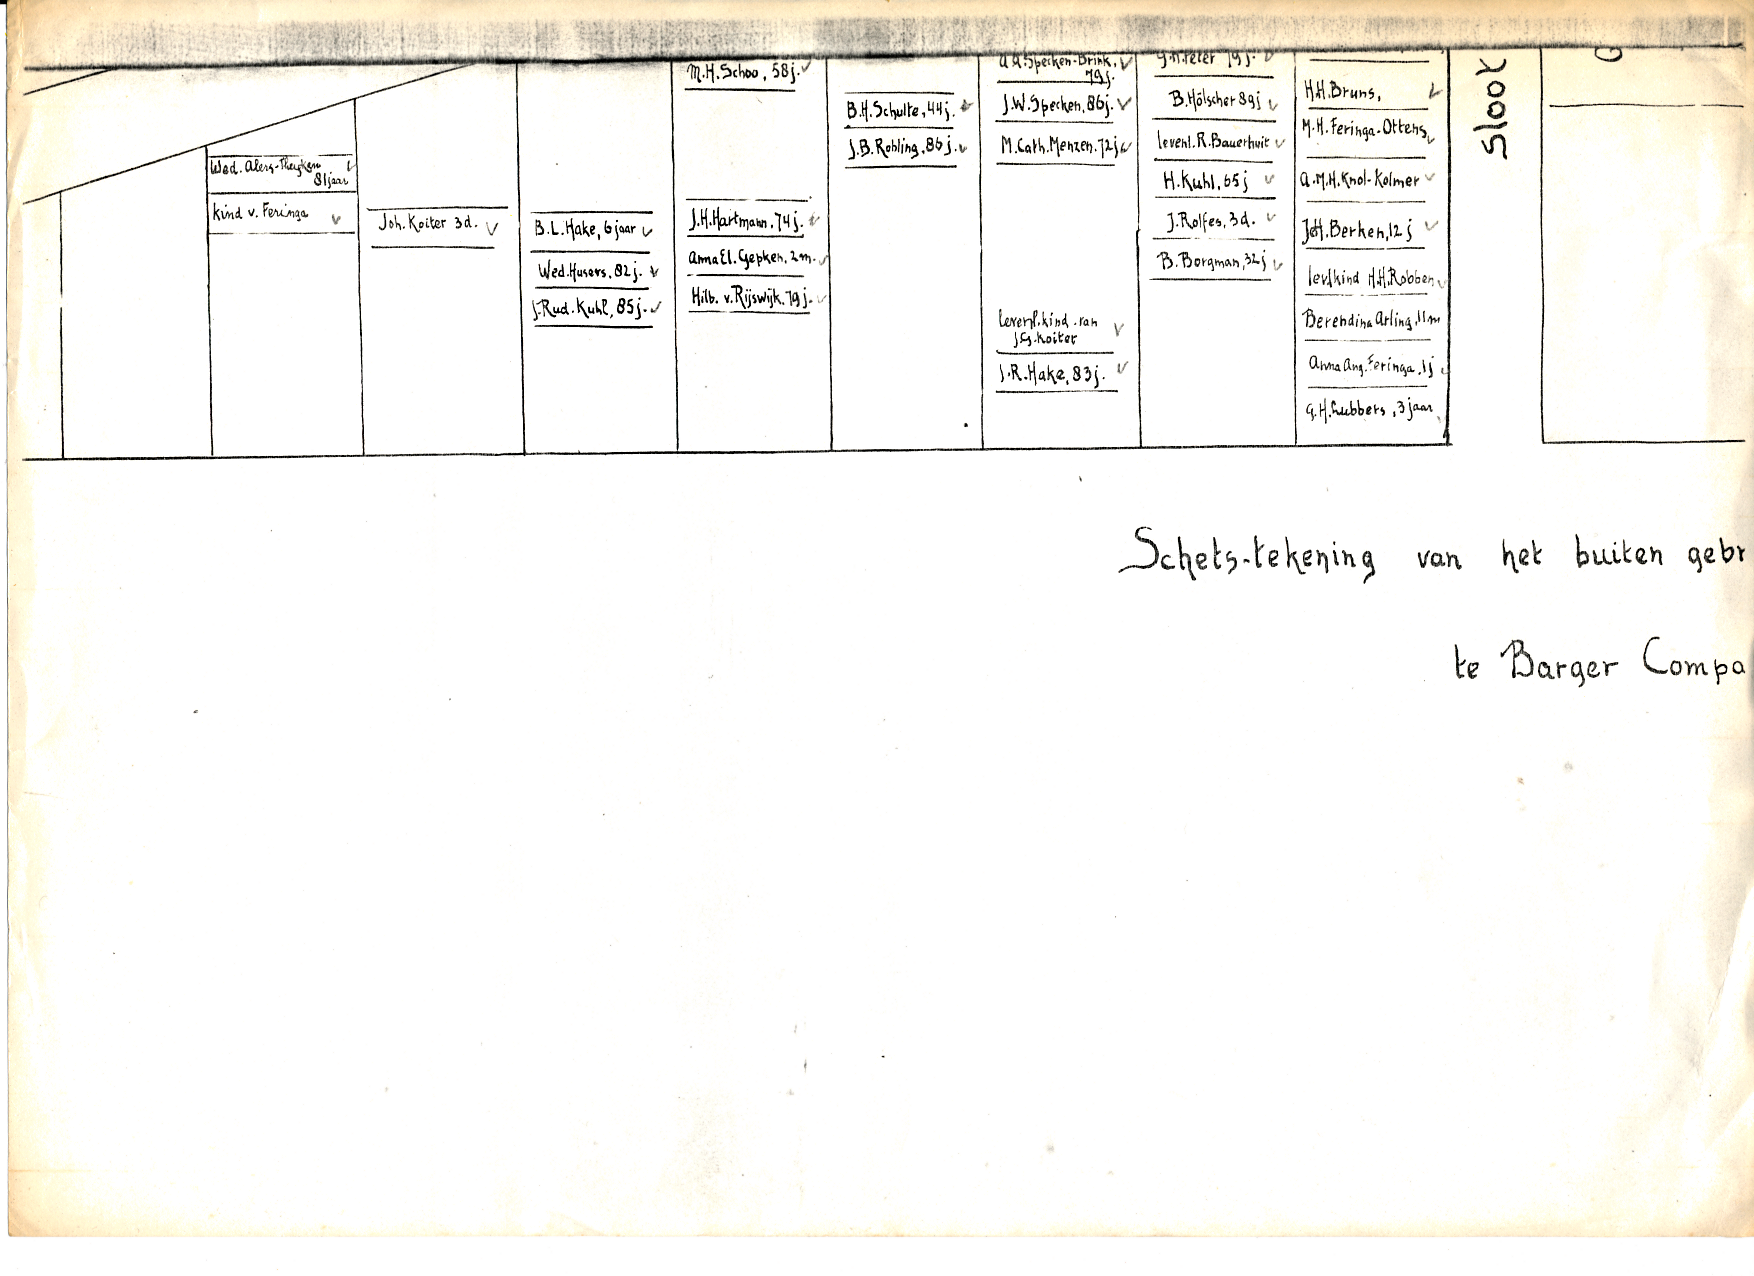 Wed. Alers-Theijken
81 jaar
Kind v. Feringa
Joh. Koiter 3d.
B.L. Hake, 6 jaar
Wed. Husers, 82 j.
J. Rud. Kuhl, 85 j.
M.H. Schoo, 58 j.
J.H. Hartmann, 74 j.
Anna El. Gepken, 2 m.
Hilb. v. Rijswijk, 79 j.
B.H. Schulte, 44 j.
J.B. Robling, 86 j.
Specken-Brink,
79 j.
J.W. Specken, 86 j.
M. Cath. Menzen, 72 j
levenl. kind van
J.G. Koiter
J.R. Hake, 83 j.
Peter 79 j.
B. Hölscher 89 j
levenl. R. Bauerhuit
H. Kuhl, 65 j
J. Rolfes, 3 d.
B. Borgman, 32 j
H.H. Bruns,
M.H. Feringa-Ottens
A.M.H. Knol-Kolmer
J.H. Berken, 12 j
levl kind H.H. Robben
Berendina Arling, 11 m
Anna Ang. Feringa, 1 j
G.H. Lubbers, 3 jaar
Sloot
Schets-tekening van het buiten gebr
te Barger Compa